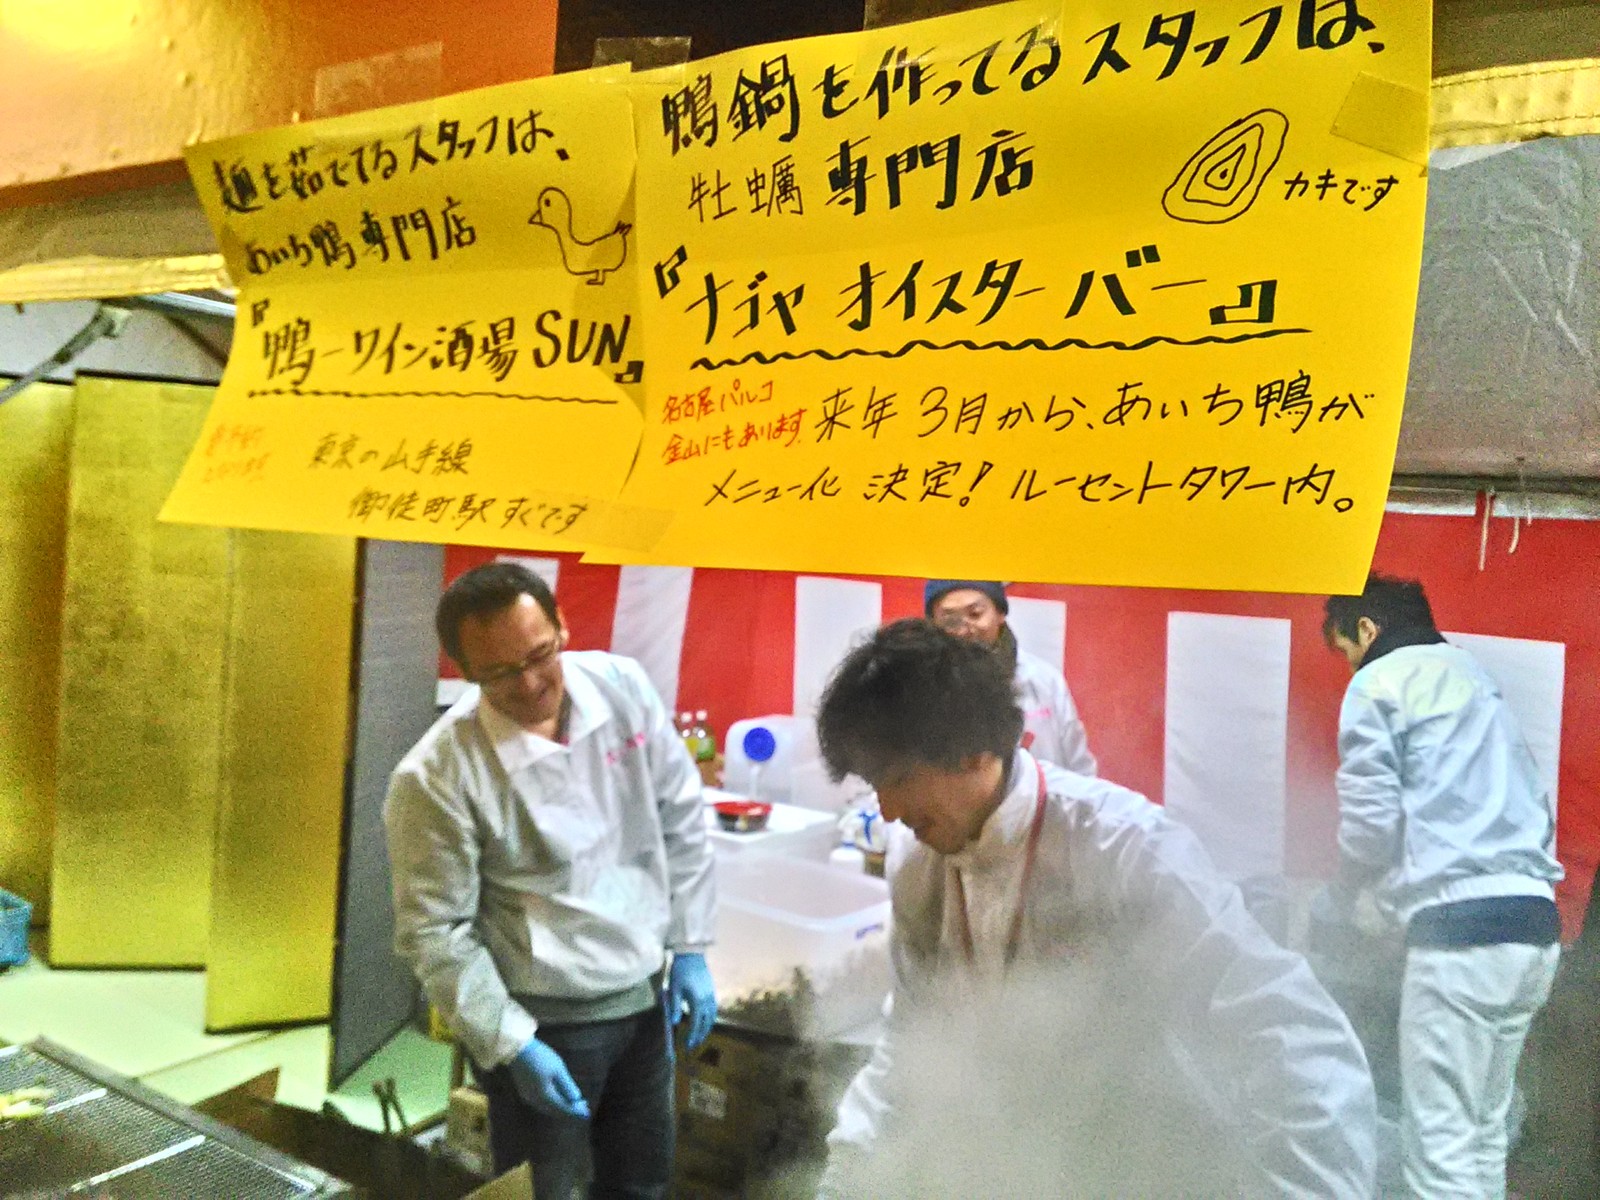 麺を茹でてるスタッフは、
あいち鴨専門店
『鴨一ワイン酒場SUN』
東京の山手線
御徒町駅すぐです
鴨鍋を作ってるスタッフは、
牡蠣専門店
カキです
『ナゴヤオイスターバー』
名古屋パルコ
金山にもあります。
来年3月から、あいち鴨が
メニュー化決定!ルーセントタワー内。